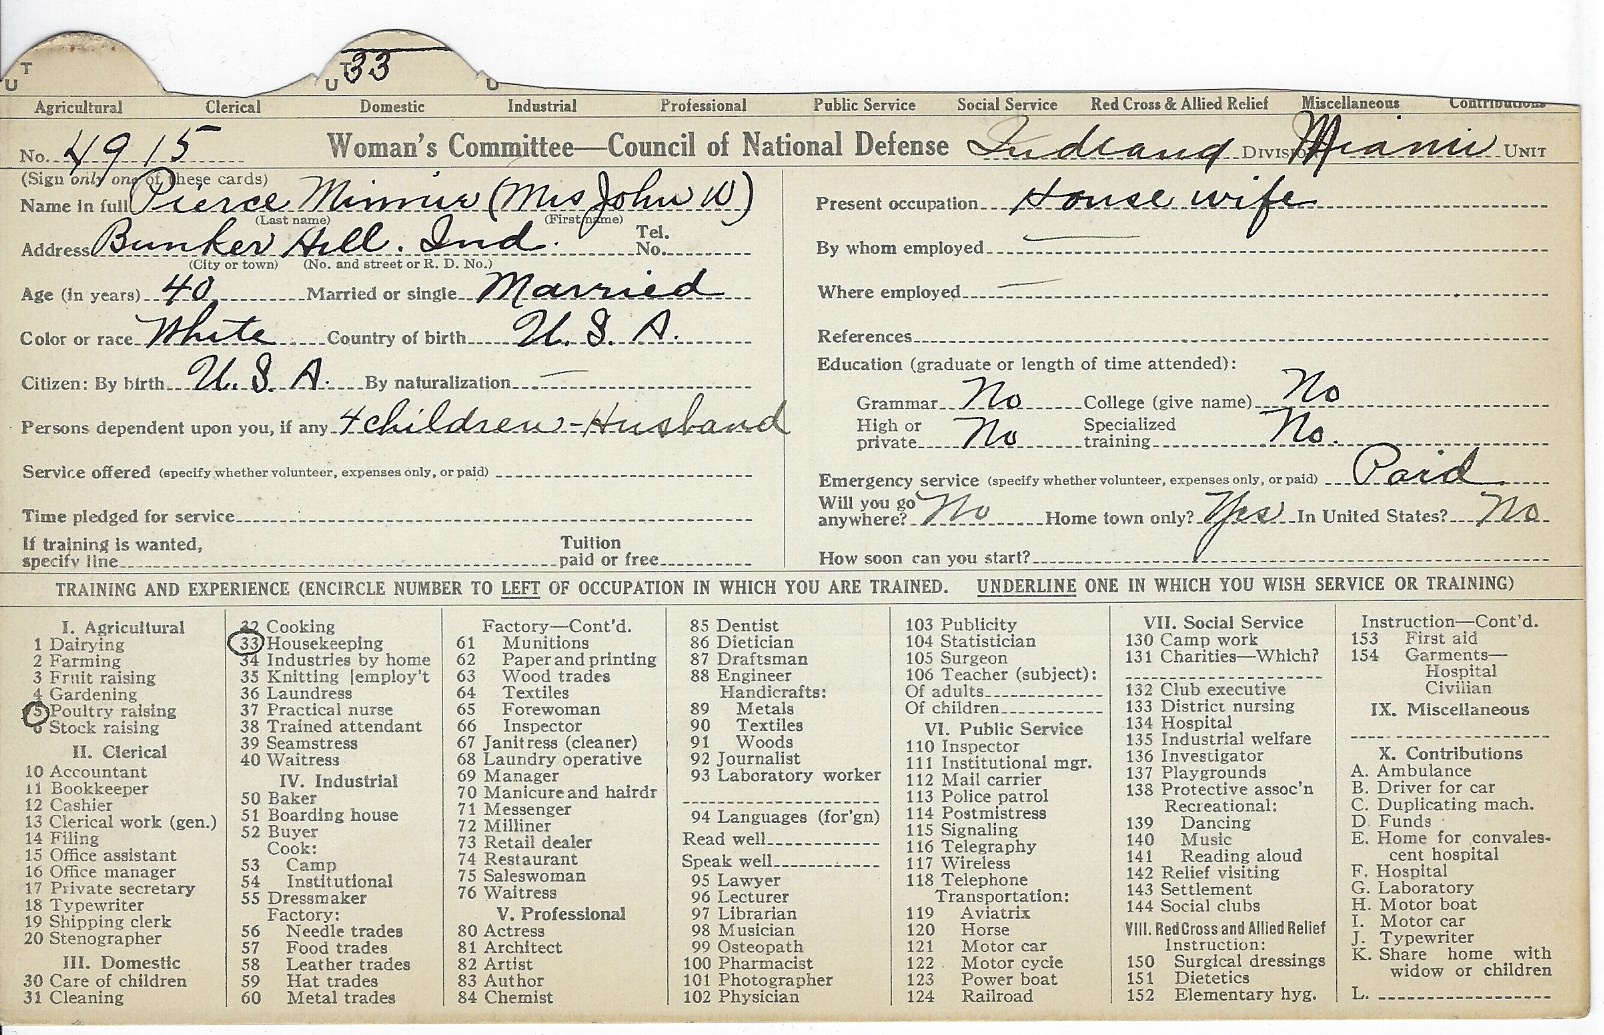 T
U
T
U
33
U
Agricultural Clerical Domestic Industrial Professional Public Service Social Service Red Cross & Allied Relief Miscellaneous Contributions
No. 4915 Woman's Committee—Council of National Defense Indiana Division Miami Unit
(Sign only one of these cards)
Name in full Pierce Minnie (Mrs John W)
(Last name) (First name)
Address Bunker Hill. Ind. Tel. No.
(City or town) (No. and street or R. D. No.)
Age (in years) 40 Married or single Married
Color or race White Country of birth U. S. A.
Citizen: By birth U. S. A. By naturalization —
Persons dependent upon you, if any 4 children - Husband
Service offered (specify whether volunteer, expenses only, or paid)
Time pledged for service
If training is wanted, specify line Tuition paid or free
Present occupation House wife
By whom employed —
Where employed —
References
Education (graduate or length of time attended):
Grammar No College (give name) No
High or private No Specialized training No.
Emergency service (specify whether volunteer, expenses only, or paid) Paid
Will you go anywhere? No Home town only? Yes In United States? No
How soon can you start?
TRAINING AND EXPERIENCE (ENCIRCLE NUMBER TO LEFT OF OCCUPATION IN WHICH YOU ARE TRAINED. UNDERLINE ONE IN WHICH YOU WISH SERVICE OR TRAINING)
I. Agricultural
1 Dairying
2 Farming
3 Fruit raising
4 Gardening
5 Poultry raising
6 Stock raising
II. Clerical
10 Accountant
11 Bookkeeper
12 Cashier
13 Clerical work (gen.)
14 Filing
15 Office assistant
16 Office manager
17 Private secretary
18 Typewriter
19 Shipping clerk
20 Stenographer
III. Domestic
30 Care of children
31 Cleaning
32 Cooking
33 Housekeeping
34 Industries by home
35 Knitting [employ't
36 Laundress
37 Practical nurse
38 Trained attendant
39 Seamstress
40 Waitress
IV. Industrial
50 Baker
51 Boarding house
52 Buyer
Cook:
53 Camp
54 Institutional
55 Dressmaker
Factory:
56 Needle trades
57 Food trades
58 Leather trades
59 Hat trades
60 Metal trades
Factory—Cont'd.
61 Munitions
62 Paper and printing
63 Wood trades
64 Textiles
65 Forewoman
66 Inspector
67 Janitress (cleaner)
68 Laundry operative
69 Manager
70 Manicure and hairdr
71 Messenger
72 Milliner
73 Retail dealer
74 Restaurant
75 Saleswoman
76 Waitress
V. Professional
80 Actress
81 Architect
82 Artist
83 Author
84 Chemist
85 Dentist
86 Dietician
87 Draftsman
88 Engineer
Handicrafts:
89 Metals
90 Textiles
91 Woods
92 Journalist
93 Laboratory worker
94 Languages (for'gn)
Read well
Speak well
95 Lawyer
96 Lecturer
97 Librarian
98 Musician
99 Osteopath
100 Pharmacist
101 Photographer
102 Physician
103 Publicity
104 Statistician
105 Surgeon
106 Teacher (subject):
Of adults
Of children
VI. Public Service
110 Inspector
111 Institutional mgr.
112 Mail carrier
113 Police patrol
114 Postmistress
115 Signaling
116 Telegraphy
117 Wireless
118 Telephone
Transportation:
119 Aviatrix
120 Horse
121 Motor car
122 Motor cycle
123 Power boat
124 Railroad
VII. Social Service
130 Camp work
131 Charities—Which?
132 Club executive
133 District nursing
134 Hospital
135 Industrial welfare
136 Investigator
137 Playgrounds
138 Protective assoc'n
Recreational:
139 Dancing
140 Music
141 Reading aloud
142 Relief visiting
143 Settlement
144 Social clubs
VIII. Red Cross and Allied Relief
Instruction:
150 Surgical dressings
151 Dietetics
152 Elementary hyg.
Instruction—Cont'd.
153 First aid
154 Garments—
Hospital
Civilian
IX. Miscellaneous
X. Contributions
A. Ambulance
B. Driver for car
C. Duplicating mach.
D. Funds
E. Home for convales-
cent hospital
F. Hospital
G. Laboratory
H. Motor boat
I. Motor car
J. Typewriter
K. Share home with
widow or children
L.